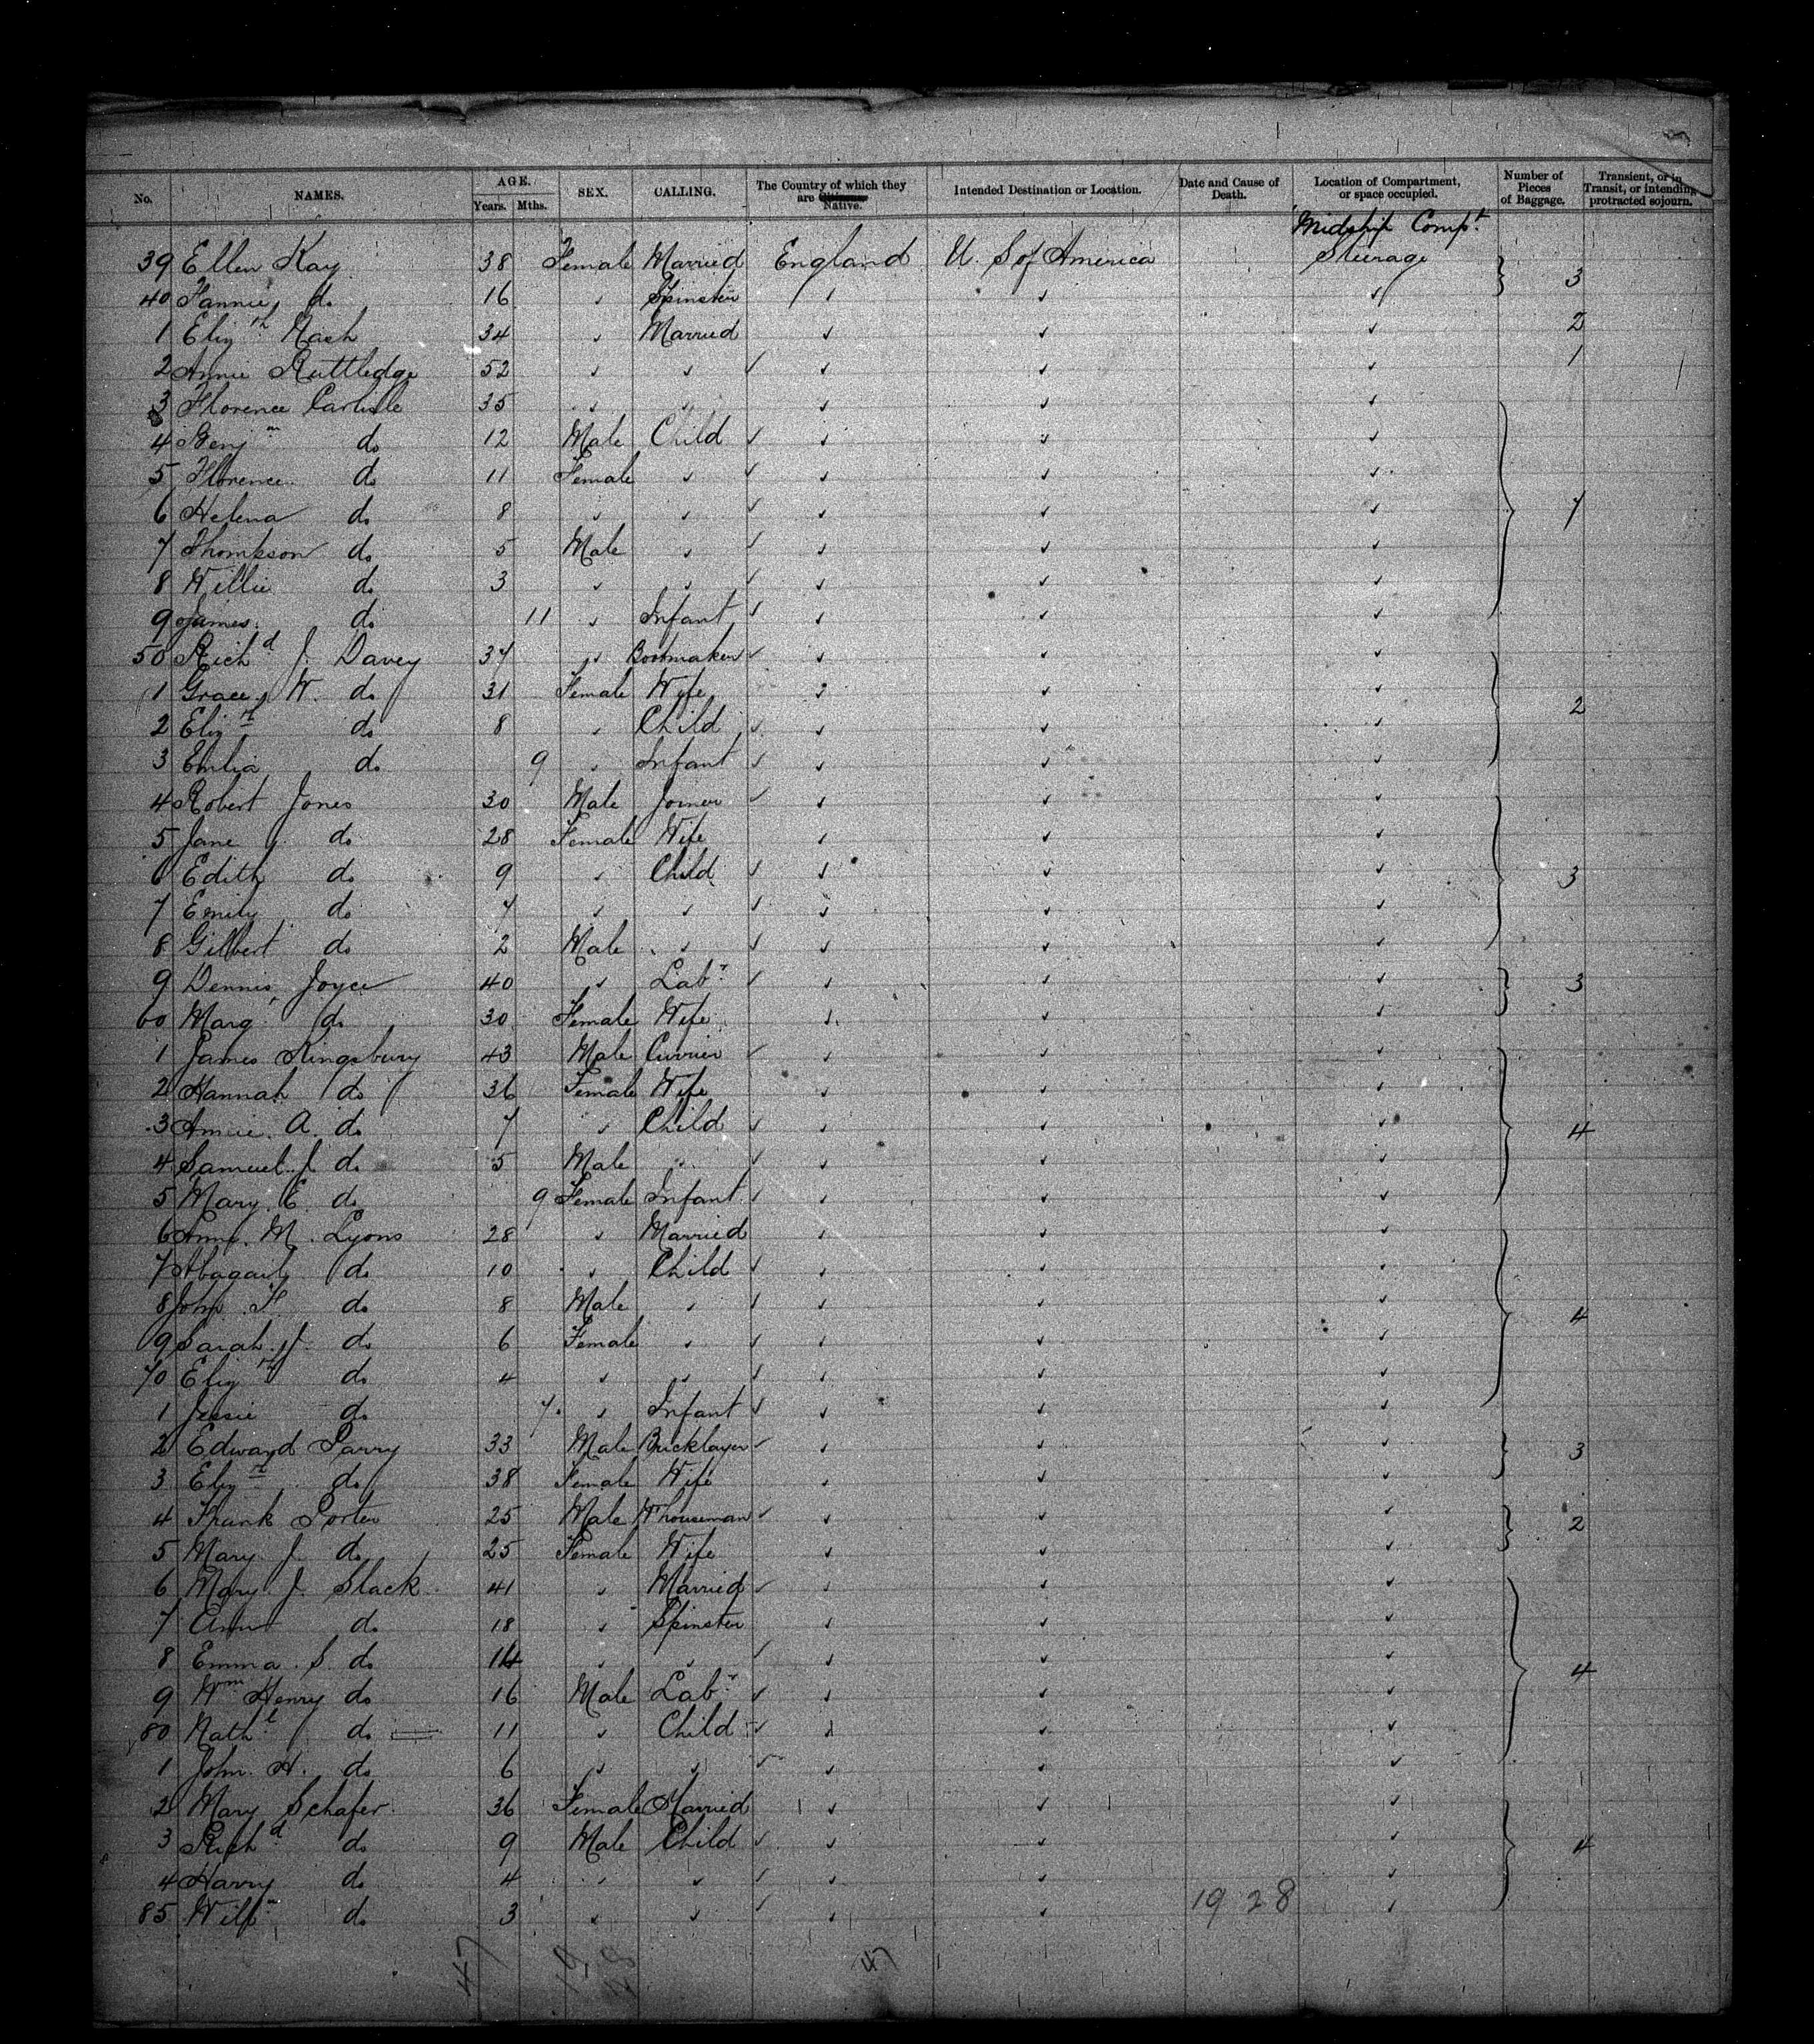 No. NAMES. AGE. Years. Mths. SEX. CALLING. The Country of which they are Native. Intended Destination or Location. Date and Cause of Death. Location of Compartment, or space occupied. Number of Pieces of Baggage. Transient, or in Transit, or intending protracted sojourn.
Midship Compt
39 Ellen Kay 38 Female Married England U. S of America Steerage 3
40 Fannie do 16 " Spinster " " "
1 Elizth Nash 34 " Married " " " 2
2 Annie Ruttledge 52 " " " " " 1
3 Florence Carlisle 35 " " " " "
4 Benjn do 12 Male Child " " "
5 Florence do 11 Female " " " "
6 Helena do 8 " " " " " 7
7 Thompson do 5 Male " " " "
8 Willie do 3 " " " " "
9 James do 11 " Infant " " "
50 Richd J. Davey 37 " Bootmaker " " "
1 Grace W. do 31 Female Wife " " " 2
2 Elizth do 8 " Child " " "
3 Emlia do 9 " Infant " " "
4 Robert Jones 30 Male Joiner " " "
5 Jane do 28 Female Wife " " "
6 Edith do 9 " Child " " " 3
7 Emily do 7 " " " " "
8 Gilbert do 2 Male " " " "
9 Dennis Joyce 40 " Labr " " " 3
60 Marg do 30 Female Wife " " "
1 James Kingsbury 43 Male Currier " " "
2 Hannah do 36 Female Wife " " "
3 Annie A. do 7 " Child " " " 4
4 Samuel J do 5 Male " " " "
5 Mary E. do 9 Female Infant " " "
6 Ann M. Lyons 28 " Married " " "
7 Abagail do 10 " Child " " "
8 John F. do 8 Male " " " " 4
9 Sarah J. do 6 Female " " " "
70 Elizth do 4 " " " " "
1 Jessie do 7 " Infant " " "
2 Edward Parry 33 Male Bricklayer " " " 3
3 Elizth do 38 Female Wife " " "
4 Frank Porter 25 Male Whouseman " " " 2
5 Mary J. do 25 Female Wife " " "
6 Mary J. Slack 41 " Married " " "
7 Ann do 18 " Spinster " " "
8 Emma S. do 14 " " " " " 4
9 Wm Henry do 16 Male Labr " " "
80 Nathl do 11 " Child " " "
1 John H. do 6 " " " " "
2 Mary Schafer 36 Female Married " " "
3 Richd do 9 Male Child " " " 4
4 Harry do 4 " " " " "
85 do 3 " " " " 19 28 "
47 19 28 47